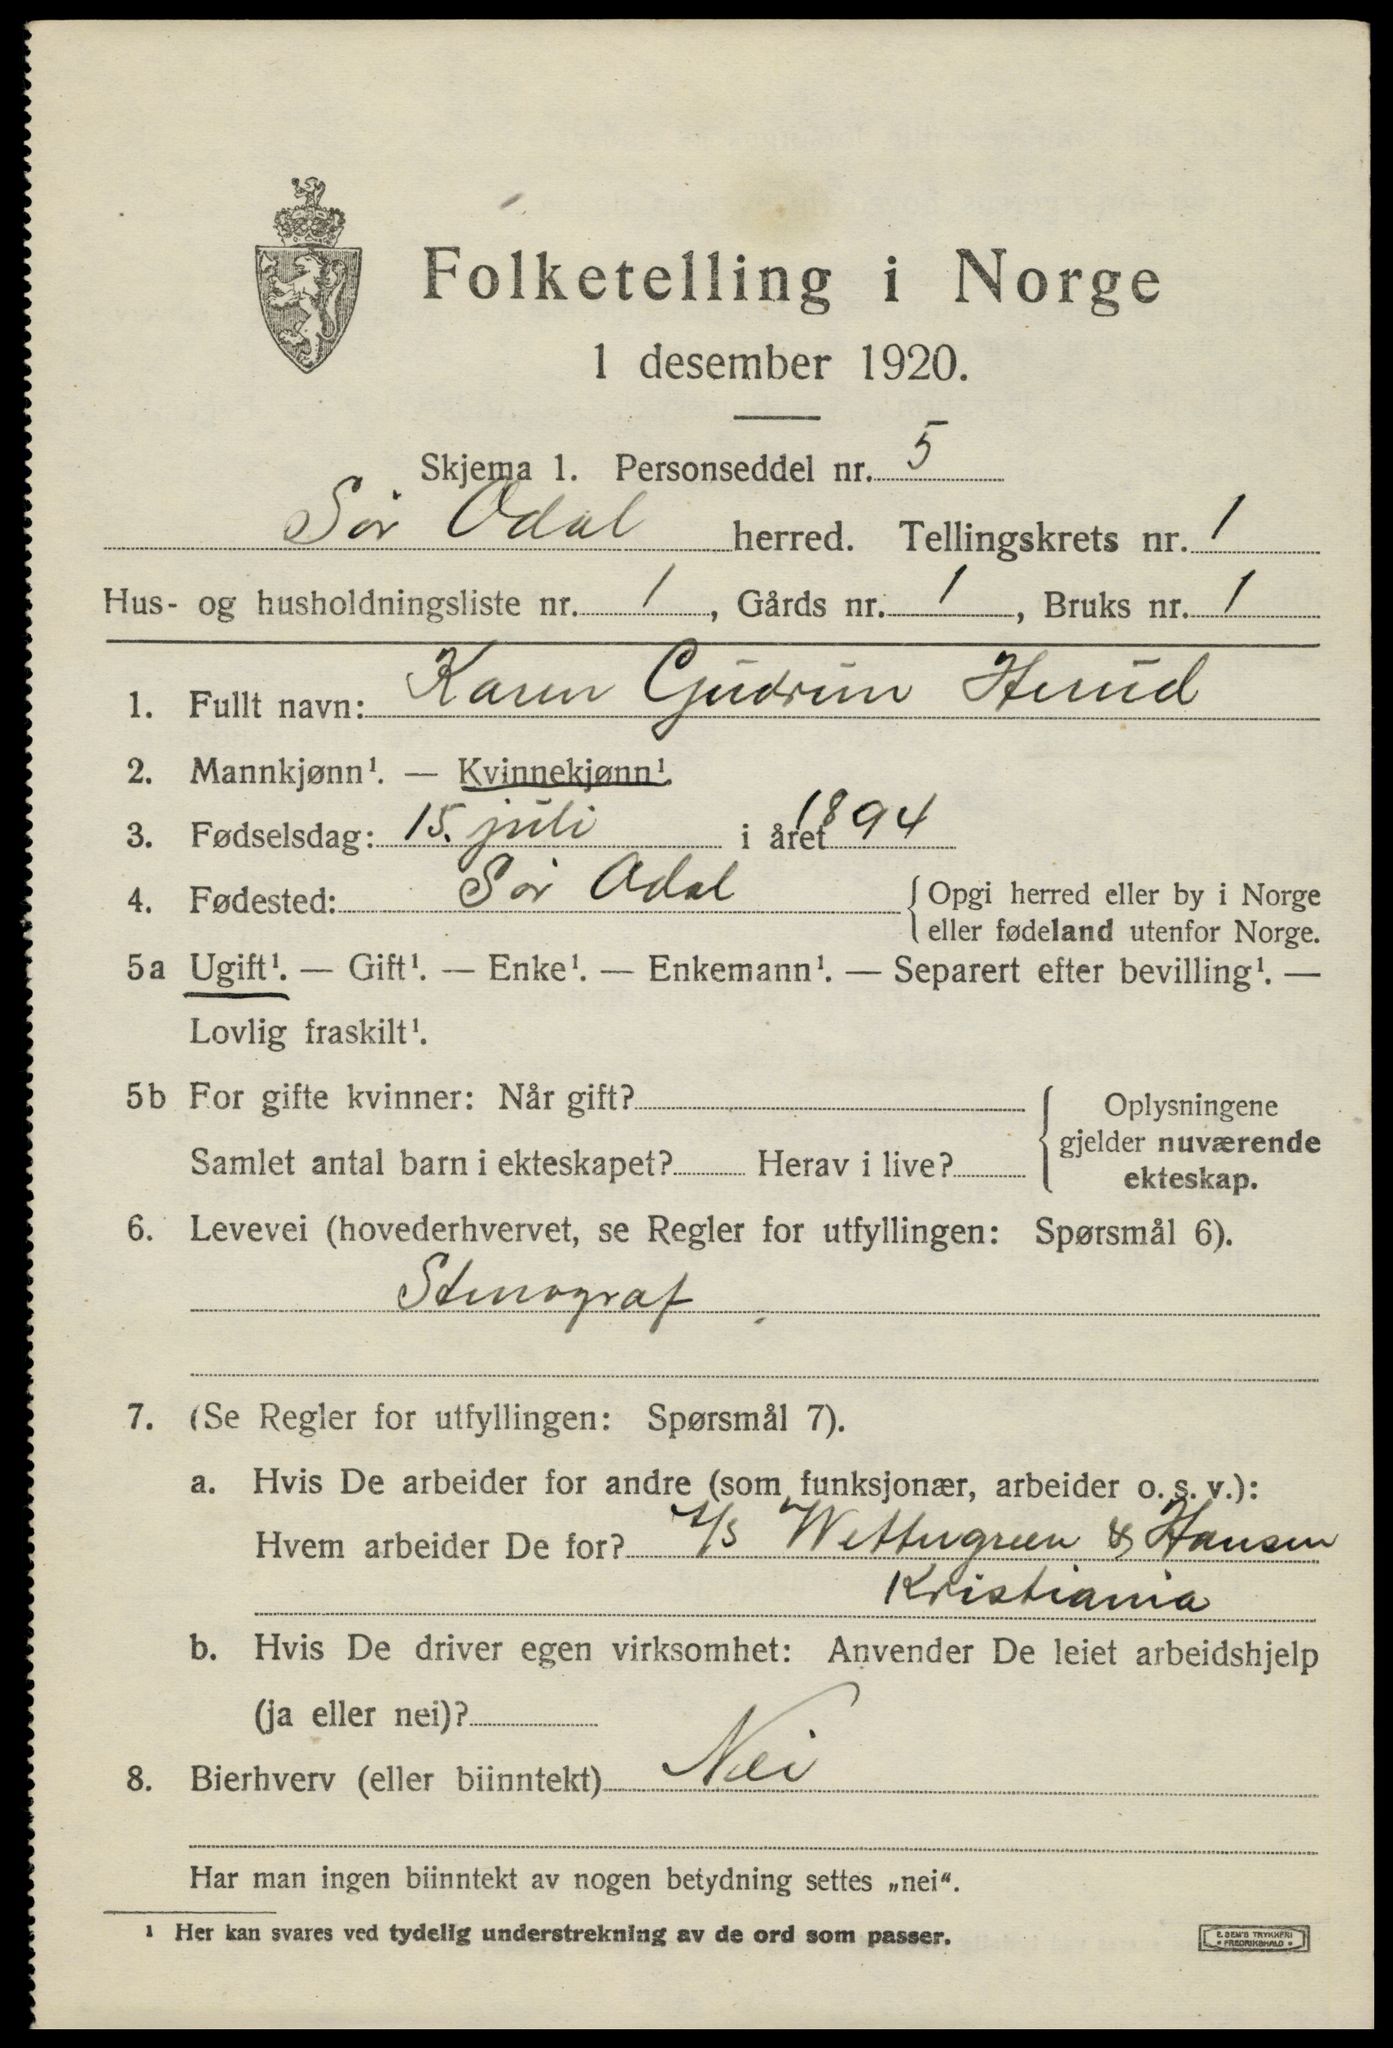 Folketelling i Norge
1 desember 1920.
Skjema 1. Personseddel nr. 5
Sør Odal herred. Tellingskrets nr. 1
Hus- og husholdningsliste nr. 1, Gårds nr. 1, Bruks nr. 1
1. Fullt navn: Karen Gudrun Herud
2. Mannkjønn¹. — Kvinnekjønn¹.
3. Fødselsdag: 15. juli i året 1894
4. Fødested: Sør Odal {Opgi herred eller by i Norge
eller fødeland utenfor Norge.
5a Ugift¹. — Gift¹. — Enke¹. — Enkemann¹. — Separert efter bevilling¹. —
Lovlig fraskilt¹.
5b For gifte kvinner: Når gift?
Samlet antal barn i ekteskapet? Herav i live?
{Oplysningene
gjelder nuværende
ekteskap.
6. Levevei (hovederhvervet, se Regler for utfyllingen: Spørsmål 6).
Stenograf
7. (Se Regler for utfyllingen: Spørsmål 7).
a. Hvis De arbeider for andre (som funksjonær, arbeider o. s. v.):
Hvem arbeider De for? A/S Wettergreen & Hansen
Kristiania
b. Hvis De driver egen virksomhet: Anvender De leiet arbeidshjelp
(ja eller nei)?
8. Bierhverv (eller biinntekt) Nei
Har man ingen biinntekt av nogen betydning settes „nei“.
¹ Her kan svares ved tydelig understrekning av de ord som passer.
E. SEM'S TRYKKERI
• FREDRIKSHALD •